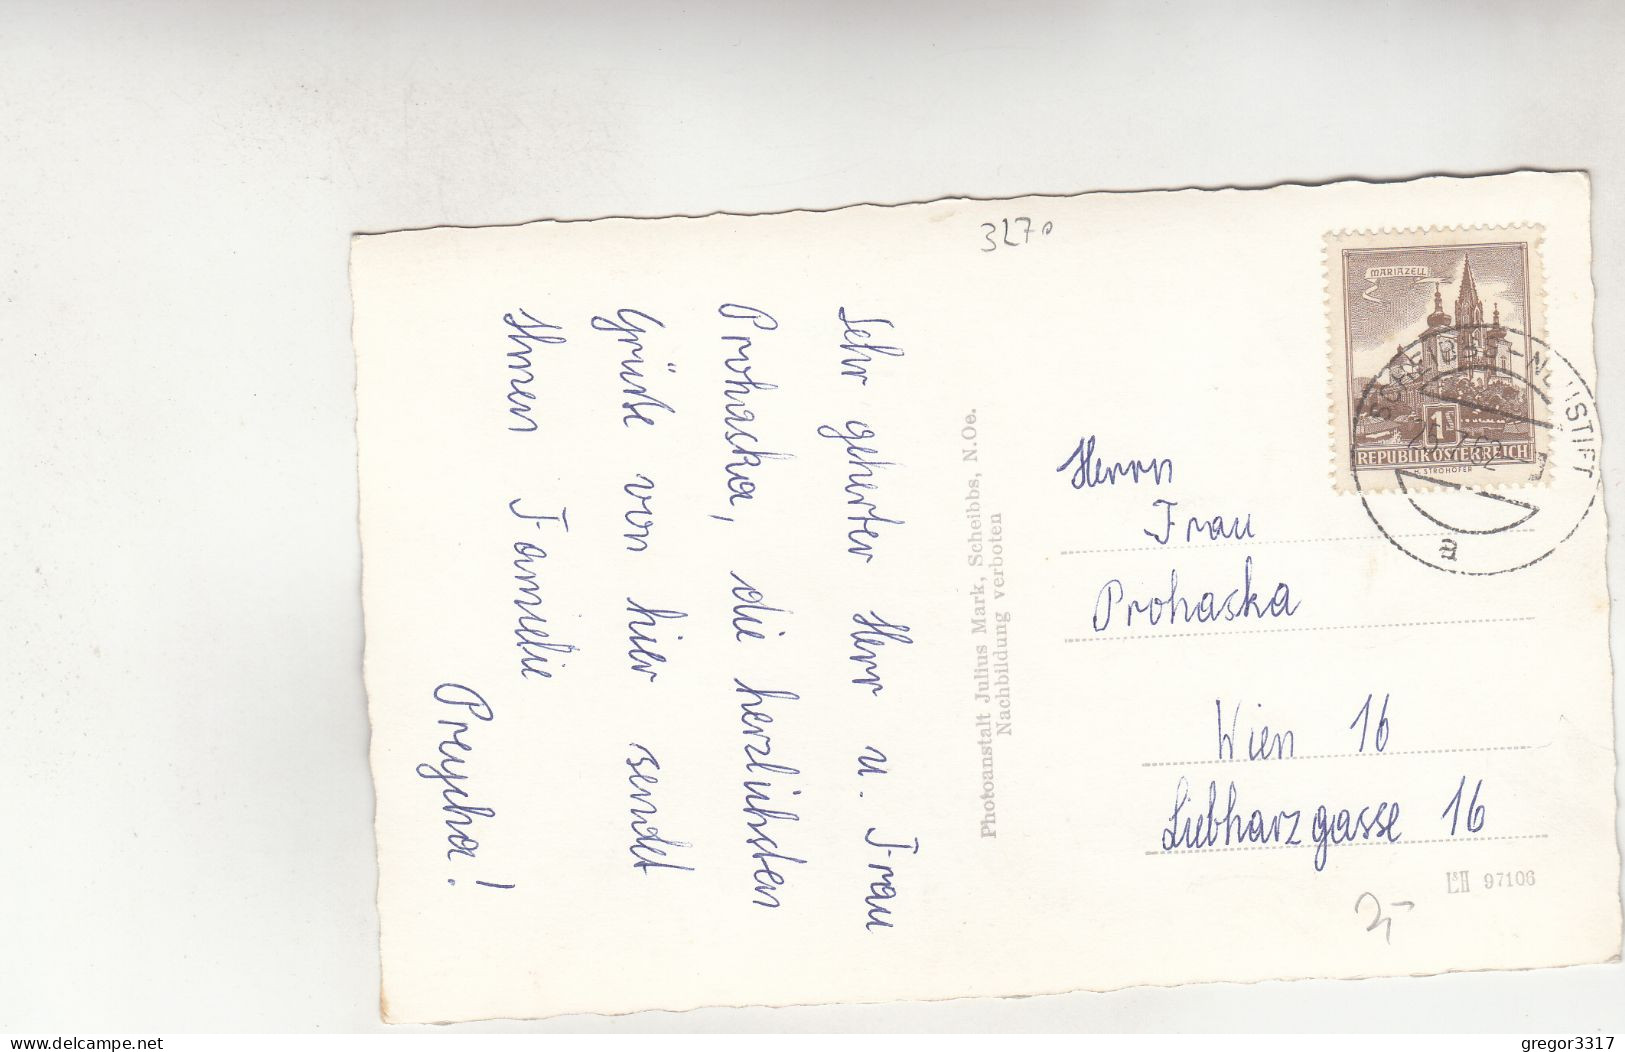 3270
Sehr geherter Herr u. Frau
Prohaska, die herzlichsten
Grüße von hier sendet
Ihnen Familie
Preycha!
Photoanstalt Julius Mark, Scheibbs, N.Oe.
Nachbildung verboten
MARIAZELL
1S
REPUBLIK ÖSTERREICH
H. STROHOFER
SCHEIBBS-NEUSTIFT
a
Herrn
Frau
Prohaska
Wien 16
Liebharzgasse 16
97106
www.delcampe.net
gregor3317